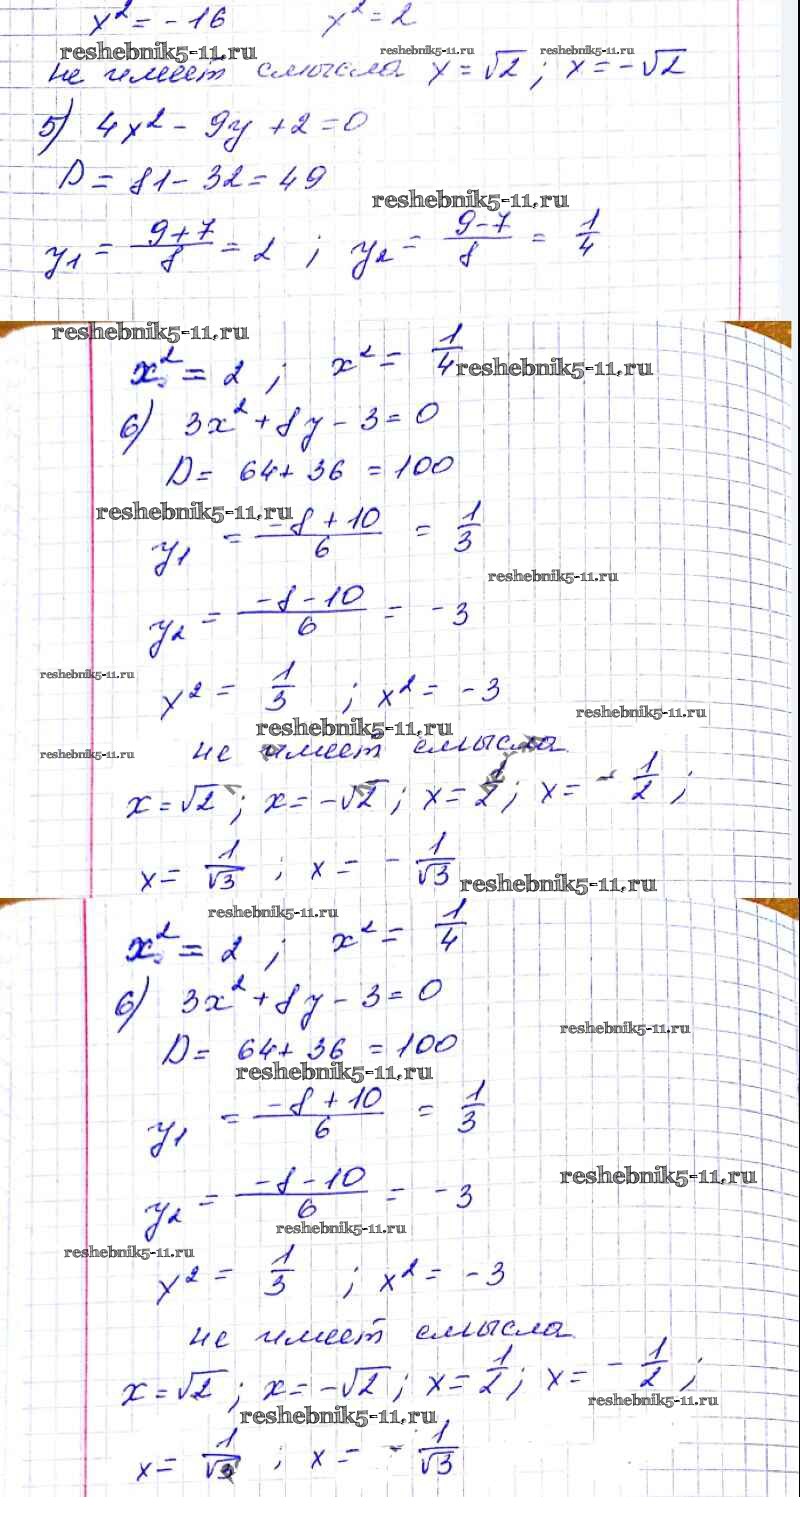 x² = -16 x² = 2
reshebnik5-11.ru reshebnik5-11.ru reshebnik5-11.ru
не имеет смысла x = √2 ; x = -√2
5) 4x² - 9y + 2 = 0
D = 81 - 32 = 49
reshebnik5-11.ru
y₁ = (9+7)/8 = 2 ; y₂ = (9-7)/8 = 1/4
reshebnik5-11.ru
x² = 2 ; x² = 1/4
reshebnik5-11.ru
6) 3x² + 8y - 3 = 0
D = 64 + 36 = 100
reshebnik5-11.ru
y₁ = (-8+10)/6 = 1/3
reshebnik5-11.ru
y₂ = (-8-10)/6 = -3
reshebnik5-11.ru
x² = 1/3 ; x² = -3
reshebnik5-11.ru
reshebnik5-11.ru
не имеет смысла
reshebnik5-11.ru
x = √2 ; x = -√2 ; x = 1/2 ; x = -1/2 ;
x = 1/√3 ; x = -1/√3
reshebnik5-11.ru
reshebnik5-11.ru
x² = 2 ; x² = 1/4
6) 3x² + 8y - 3 = 0
reshebnik5-11.ru
D = 64 + 36 = 100
reshebnik5-11.ru
y₁ = (-8+10)/6 = 1/3
reshebnik5-11.ru
y₂ = (-8-10)/6 = -3
reshebnik5-11.ru
reshebnik5-11.ru
x² = 1/3 ; x² = -3
не имеет смысла
x = √2 ; x = -√2 ; x = 1/2 ; x = -1/2 ;
reshebnik5-11.ru
reshebnik5-11.ru
x = 1/√3 ; x = -1/√3